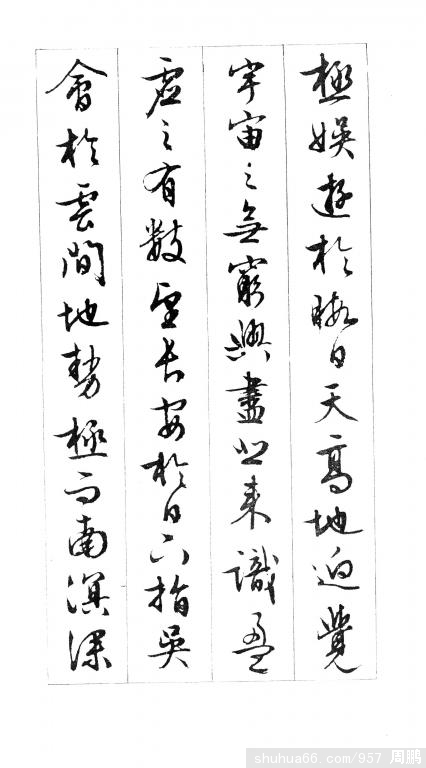 極娛遊於暇日天高地迥覺
宇宙之無窮興盡悲來識盈
虛之有數望長安於日下指吳
會於雲間地勢極而南溟深
shuhua66.com/957 周鹏